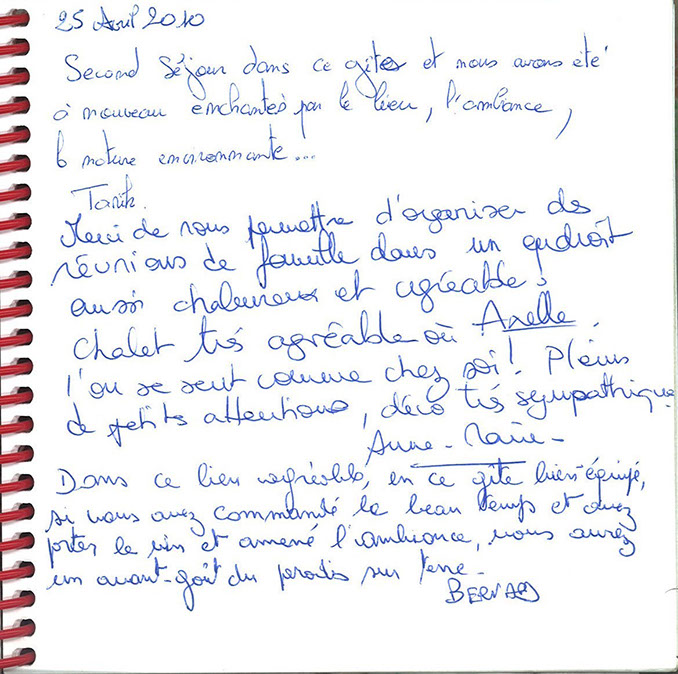 25 Avril 2010
Second séjour dans ce gîte et nous avons été
à nouveau enchantés par le lieu, l'ambiance,
la nature environnante...
Merci de nous permettre d'organiser des
réunions de famille dans un endroit
aussi chaleureux et agréable !
Axelle
Chalet très agréable où
l'on se sent comme chez soi ! Pleins
de petits attentions, déco très sympathique
Anne-Marie-
Dans ce lieu agréable, en ce gîte bien équipé,
si vous avez commandé le beau temps et avez
porter le vin et amené l'ambiance, vous aurez
un avant-goût du paradis sur terre.
BERNARD